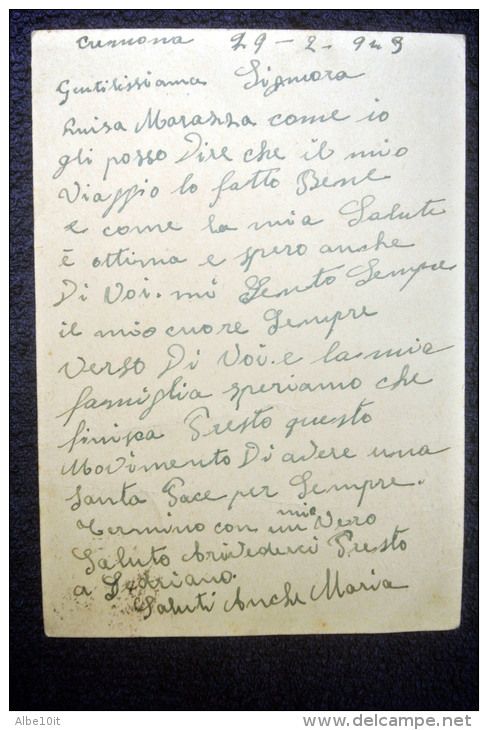 Cremona 29-2-943
Gentilissiama Signora
Luisa Marazza come io
gli posso Dire che il mio
Viaggio lo fatto Bene
e come la mia Salute
è ottima e spero anche
Di Voi. mi Sento Sempre
il mio cuore Sempre
verso Di Voi. e la mia
famiglia speriamo che
finisca Presto questo
Movimento Di avere una
Santa Pace per Sempre.
Termino con un mio Vero
Saluto Arivederci Presto
a
Saluti Anche Maria
Albe10it
www.delcampe.net